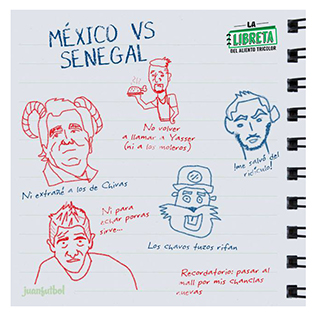 MÉXICO VS
SENEGAL
LA
LIBRETA
DEL ALIENTO TRICOLOR
No volver
a llamar a Yasser
(ni a los moleros)
¡me salvó del
ridículo!
Ni extrañé a los de Chivas
Ni para
echar porras
sirve...
Los chavos tuzos rifan
Recordatorio: pasar al
mall por mis chanclas
nuevas
juanfutbol